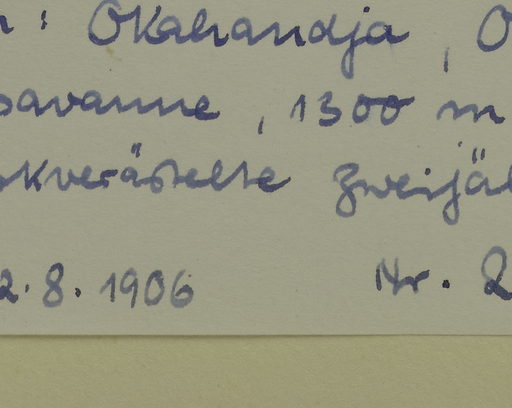 : Okahandja, O
savanne, 1300 m
kverästelte zweijäh
2.8.1906 Nr. 2